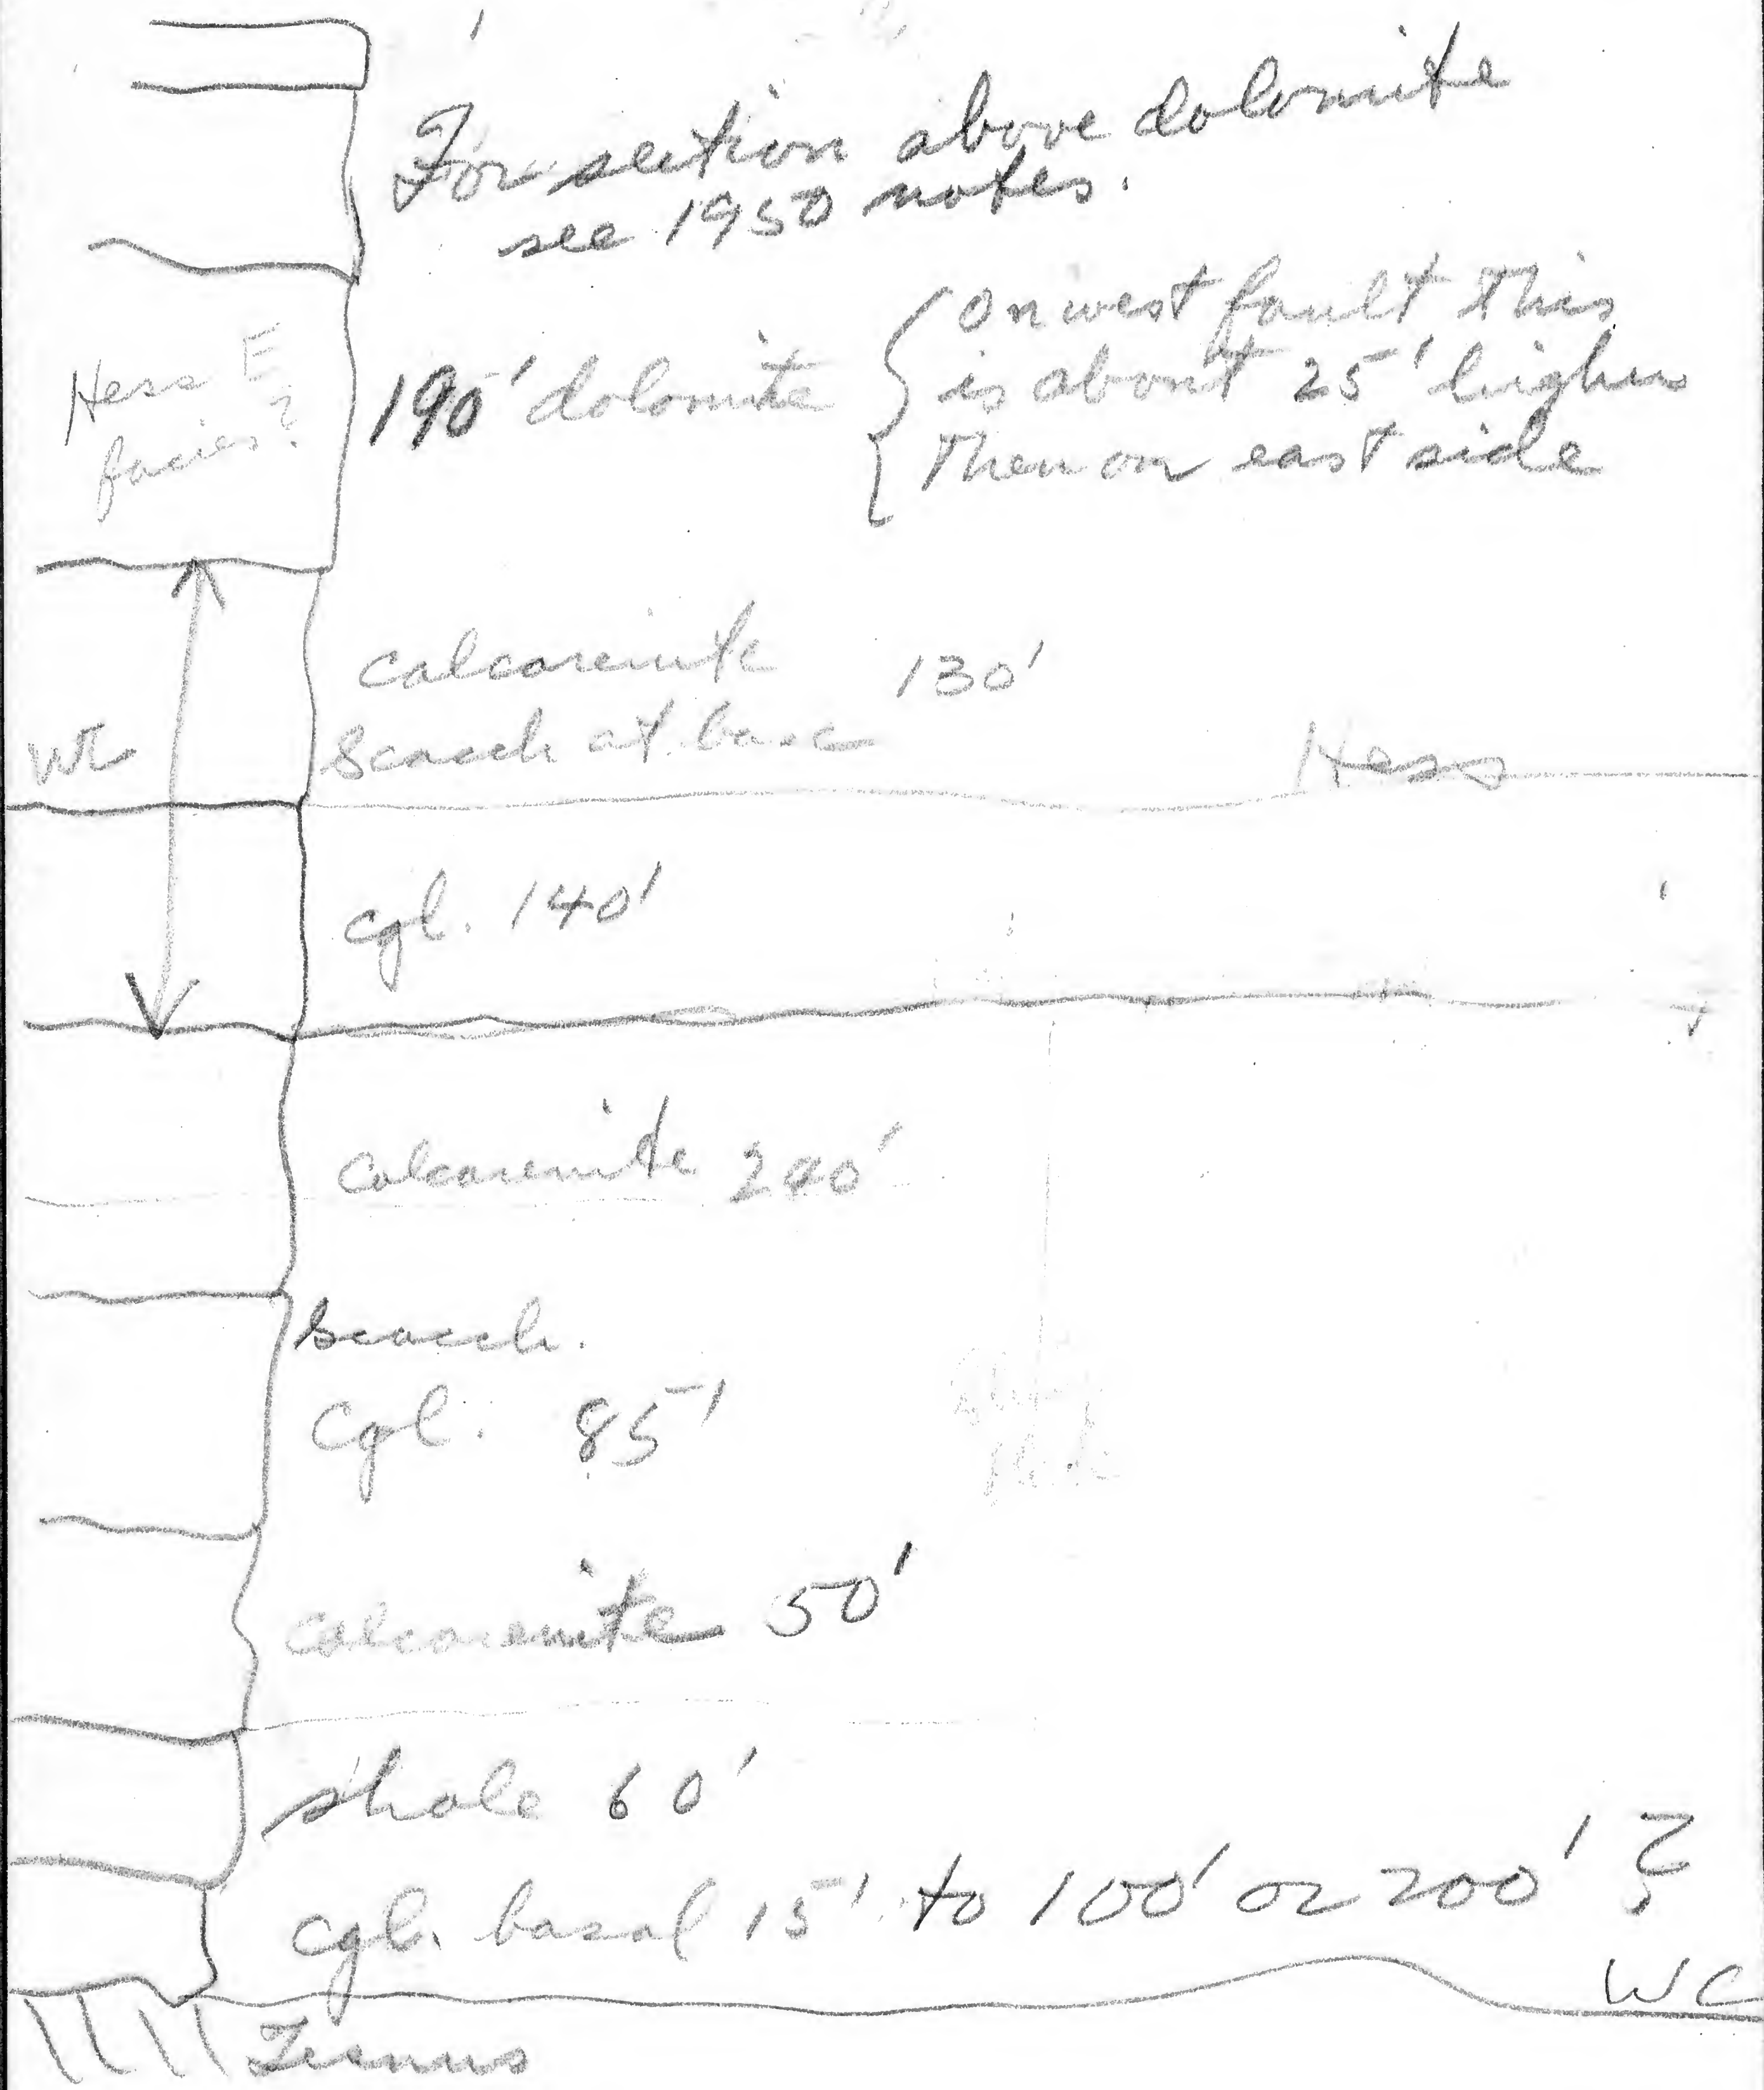 For section above dolomite
see 1950 notes.
Hess E
facies?
190' dolomite
On west fault this
is about 25' higher
then on east side
calcarenite 130'
Scacch at base
Hess
cgl. 140'
calcarenite 200'
scacch.
Cgl. 85'
calcarenite 50'
shale 60'
cgl. basal 15' to 100' or 200' ?
WC